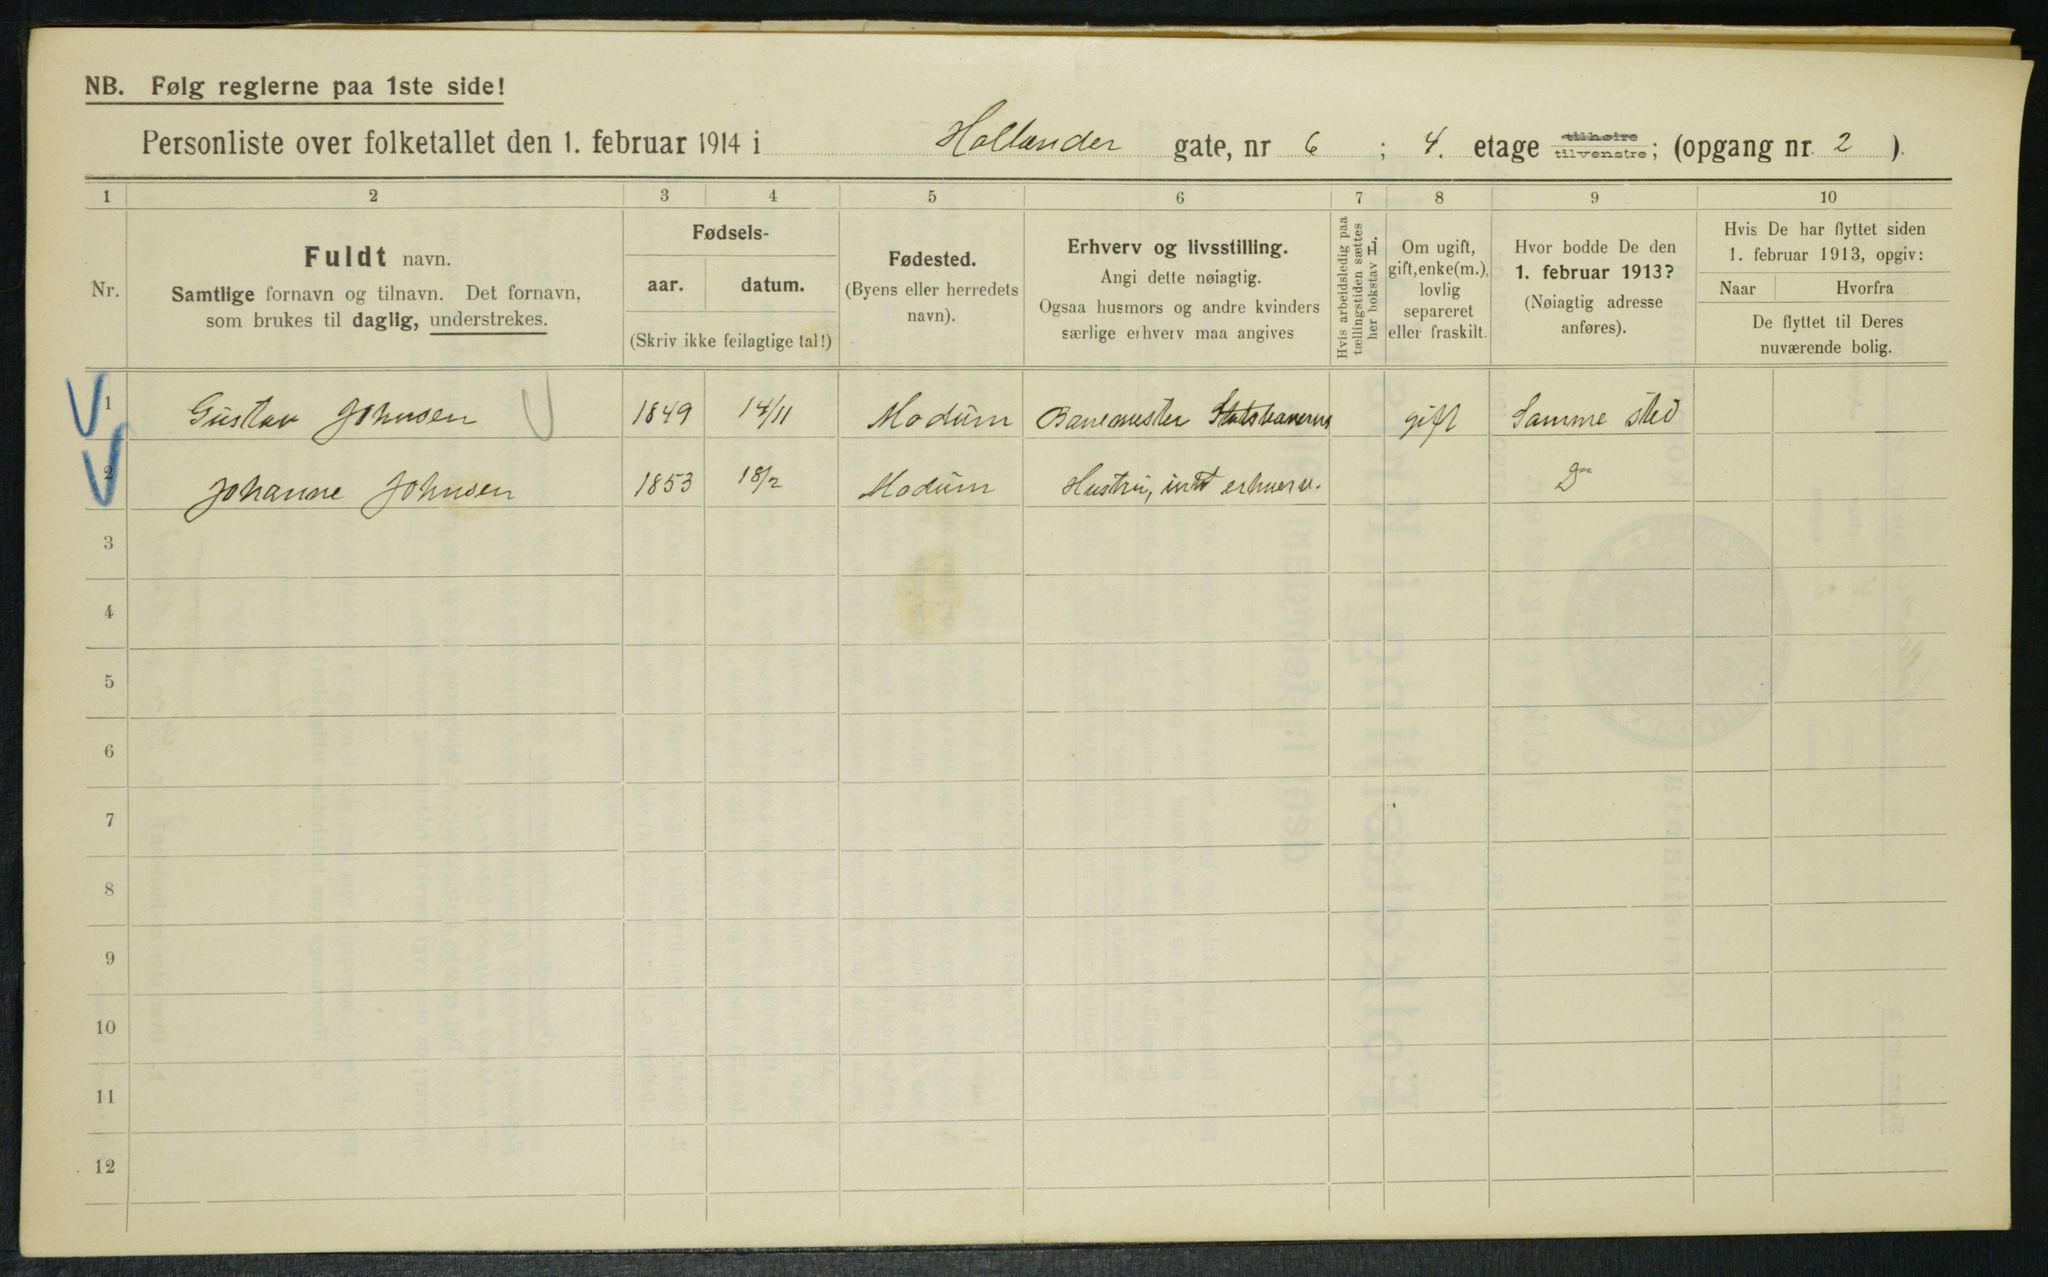 NB. Følg reglerne paa 1ste side!
Personliste over folketallet den 1. februar 1914 i Hollænder gate, nr 6 ; 4. etage tilhøire tilvenstre; (opgang nr. 2 ).
1 2 3 4 5 6 7 8 9 10
Nr.
Fuldt navn.
Samtlige fornavn og tilnavn. Det fornavn,
som brukes til daglig, understrekes.
Fødsels-
aar. datum.
(Skriv ikke feilagtige tal!)
Fødested.
(Byens eller herredets
navn).
Erhverv og livsstilling.
Angi dette nøiagtig.
Ogsaa husmors og andre kvinders
særlige erhverv maa angives
Hvis arbeidsledig paa
tællingstiden sættes
her bokstav L.
Om ugift,
gift, enke(m.),
lovlig
separeret
eller fraskilt.
Hvor bodde De den
1. februar 1913?
(Nøiagtig adresse
anføres).
Hvis De har flyttet siden
1. februar 1913, opgiv:
Naar Hvorfra
De flyttet til Deres
nuværende bolig.
1 Gustav Johnsen 1849 14/11 Modum Banemester Statsbanerne gift Samme sted
2 Johanne Johnsen 1853 18/2 Modum Hustru, intet erhverv. Do
3
4
5
6
7
8
9
10
11
12